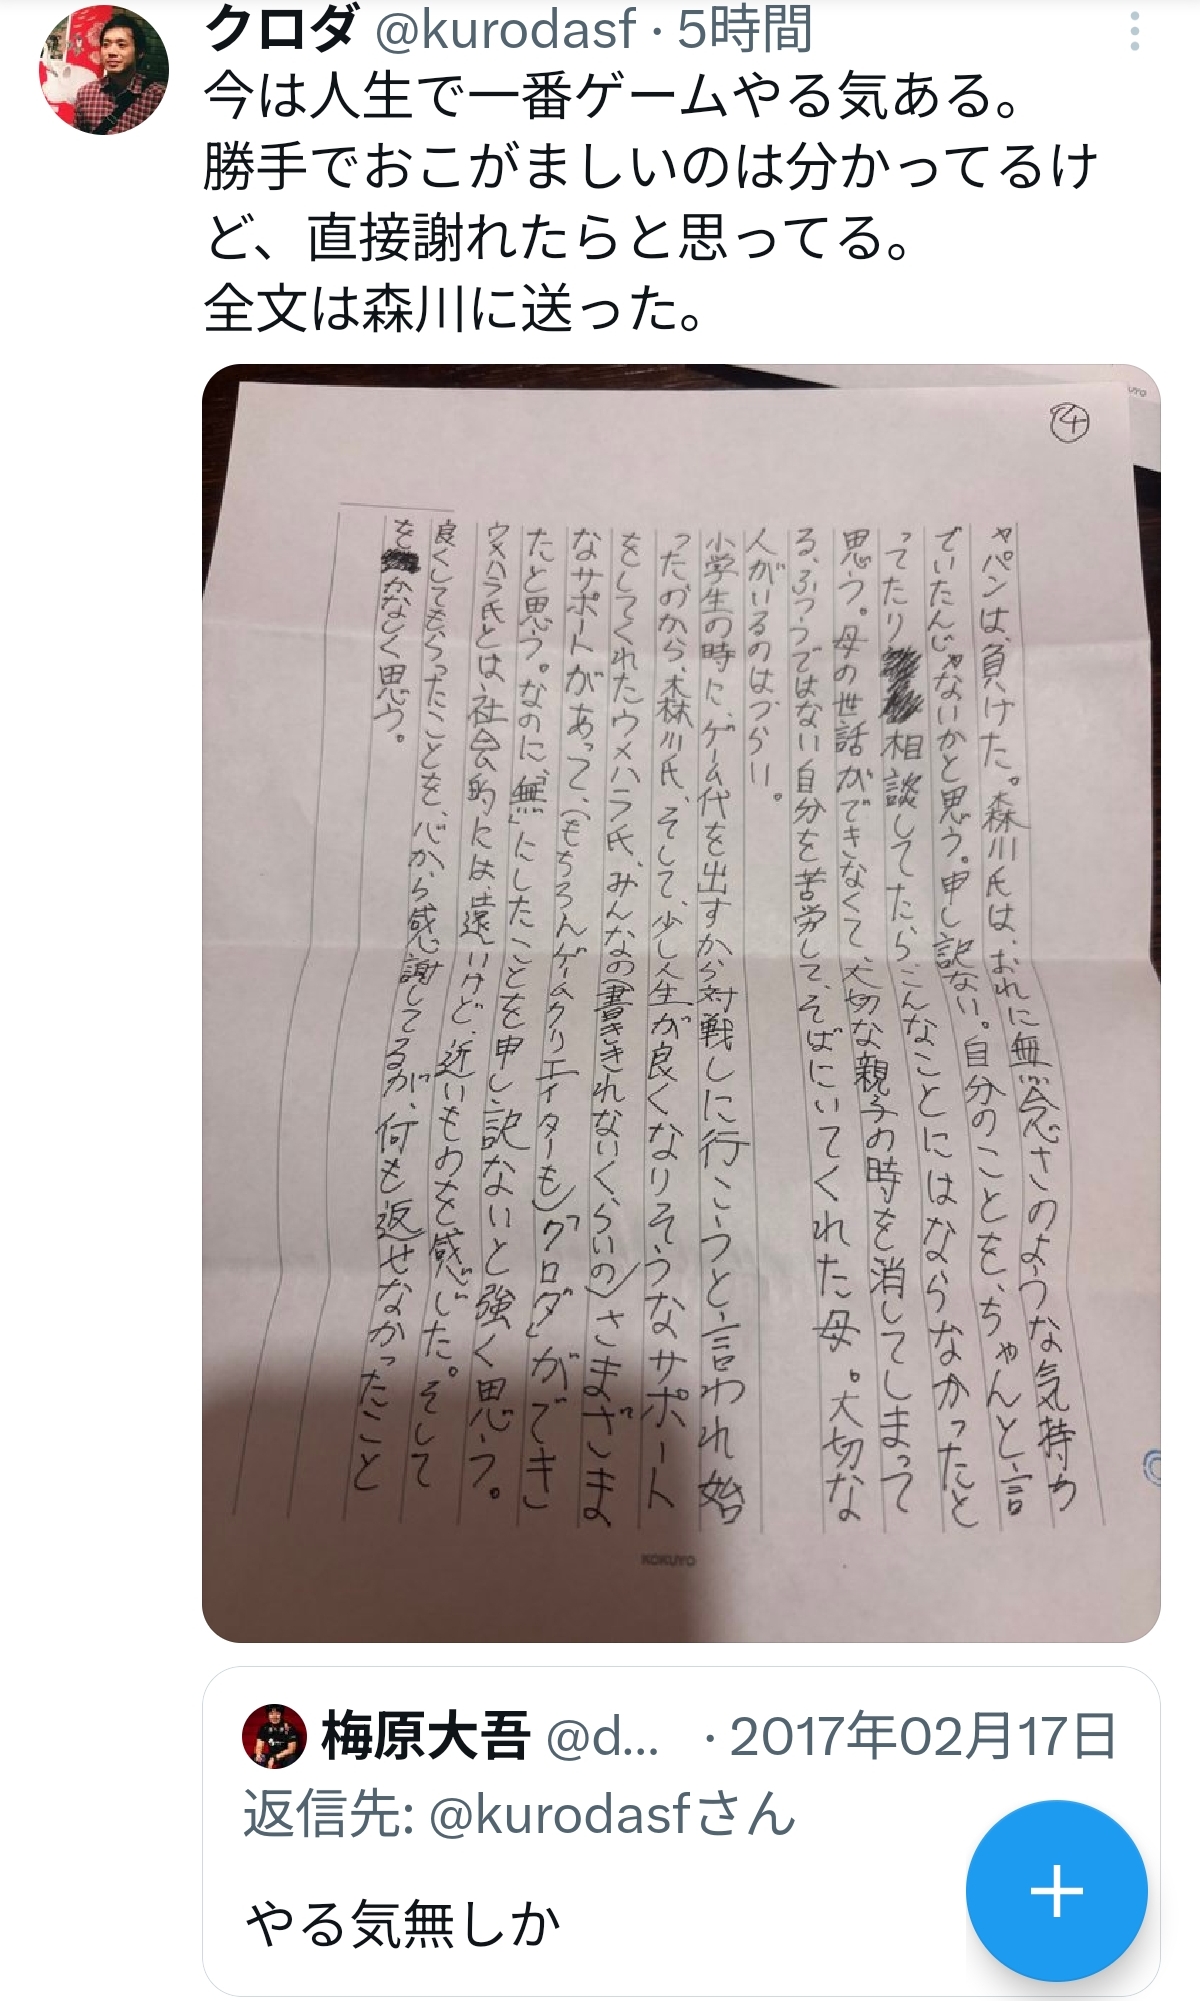 クロダ @kurodasf · 5時間
今は人生で一番ゲームやる気ある。
勝手でおこがましいのは分かってるけ
ど、直接謝れたらと思ってる。
全文は森川に送った。
④
ャパンは、負けた。森川氏は、おれに無念さのような気持ち
でいたんじゃないかと思う。申し訳ない。自分のことを、ちゃんと言
ってたり相談してたらこんなことにはならなかったと
思う。母の世話ができなくて、大切な親子の時を消してしまって
る、ふつうではない自分を苦労して、そばにいてくれた母。大切な
人がいるのはつらい。
小学生の時に、ゲーム代を出すから対戦しに行こうと言われ始
ったのから、森川氏、そして、少し人生が良くなりそうなサポート
をしてくれたウメハラ氏、みんなの(書ききれないくらいの)さまざま
なサポートがあって、(もちろんゲームクリエイターも)「クロダ」ができ
たと思う。なのに、「無」にしたことを申し訳ないと強く思う。
ウメハラ氏とは、社会的には遠いけど、近いものを感じた。そして
良くしてもらったことを、心から感謝してるが、何も返せなかったこと
をかなしく思う。
KOKUYO
梅原大吾 @d... · 2017年02月17日
返信先: @kurodasfさん
やる気無しか